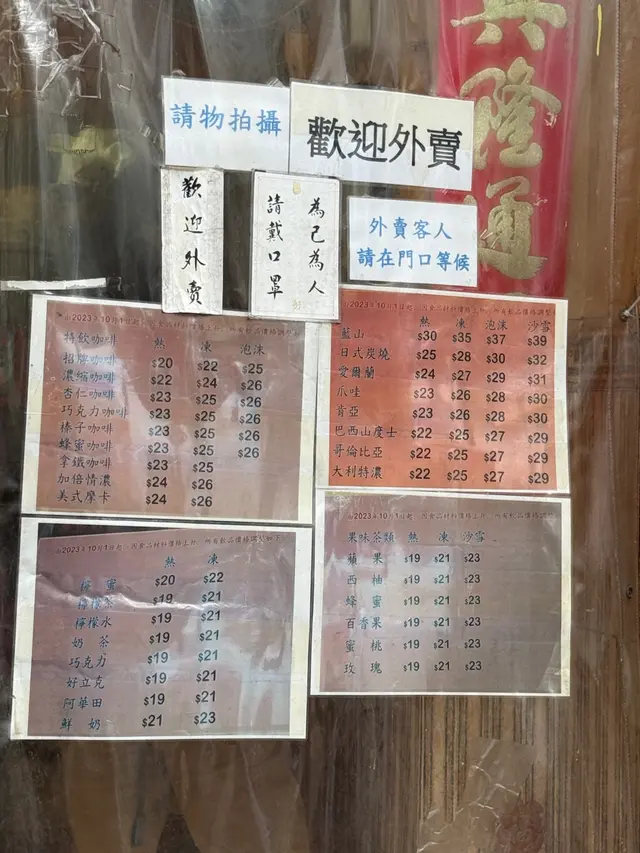 興隆通
請勿拍攝
歡迎外賣
歡迎外賣
為己為人
請戴口罩
外賣客人
請在門口等候
由2023年10月1日起，因食品材料價格上升，所有飲品價格調整
特飲咖啡 熱 凍 泡沫
招牌咖啡 $20 $22 $25
濃縮咖啡 $22 $24 $26
杏仁咖啡 $23 $25 $26
巧克力咖啡 $23 $25 $26
榛子咖啡 $23 $25 $26
蜂蜜咖啡 $23 $25 $26
拿鐵咖啡 $23 $25
加倍情濃 $24 $26
美式摩卡 $24 $26
由2023年10月1日起，因食品材料價格上升，所有飲品價格調整
熱 凍 泡沫 沙雪
藍山 $30 $35 $37 $39
日式炭燒 $25 $28 $30 $32
愛爾蘭 $24 $27 $29 $31
爪哇 $23 $26 $28 $30
肯亞 $23 $26 $28 $30
巴西山度士 $22 $25 $27 $29
哥倫比亞 $22 $25 $27 $29
大利特濃 $22 $25 $27 $29
由2023年10月1日起，因食品材料價格上升，所有飲品價格調整如下
熱 凍
檸蜜 $20 $22
檸檬茶 $19 $21
檸檬水 $19 $21
奶茶 $19 $21
巧克力 $19 $21
好立克 $19 $21
阿華田 $19 $21
鮮奶 $21 $23
由2023年10月1日起，因食品材料價格上升，所有飲品價格調整
果味茶類 熱 凍 沙雪
蘋果 $19 $21 $23
西柚 $19 $21 $23
蜂蜜 $19 $21 $23
百香果 $19 $21 $23
蜜桃 $19 $21 $23
玫瑰 $19 $21 $23